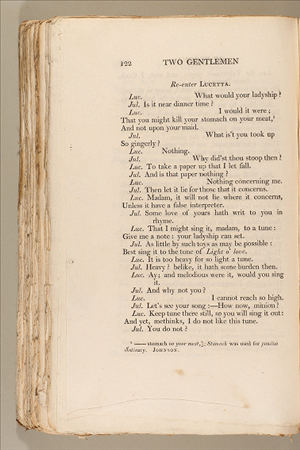 122 TWO GENTLEMEN
Re-enter LUCETTA.
Luc. What would your ladyship?
Jul. Is it near dinner time?
Luc. I would it were;
That you might kill your stomach on your meat,
And not upon your maid.
Jul. What is't you took up
So gingerly?
Luc. Nothing.
Jul. Why did'st thou stoop then?
Luc. To take a paper up that I let fall.
Jul. And is that paper nothing?
Luc. Nothing concerning me.
Jul. Then let it lie for those that it concerns.
Luc. Madam, it will not lie where it concerns,
Unless it have a false interpreter.
Jul. Some love of yours hath writ to you in
rhyme.
Luc. That I might sing it, madam, to a tune:
Give me a note: your ladyship can set.
Jul. As little by such toys as may be possible:
Best sing it to the tune of Light o' love.
Luc. It is too heavy for so light a tune.
Jul. Heavy? belike, it hath some burden then.
Luc. Ay; and melodious were it, would you sing
it.
Jul. And why not you?
Luc. I cannot reach so high.
Jul. Let's see your song:—How now, minion?
Luc. Keep tune there still, so you will sing it out:
And yet, methinks, I do not like this tune.
Jul. You do not?
—— stomach on your meat,] Stomach was used for passion
JOHNSON.